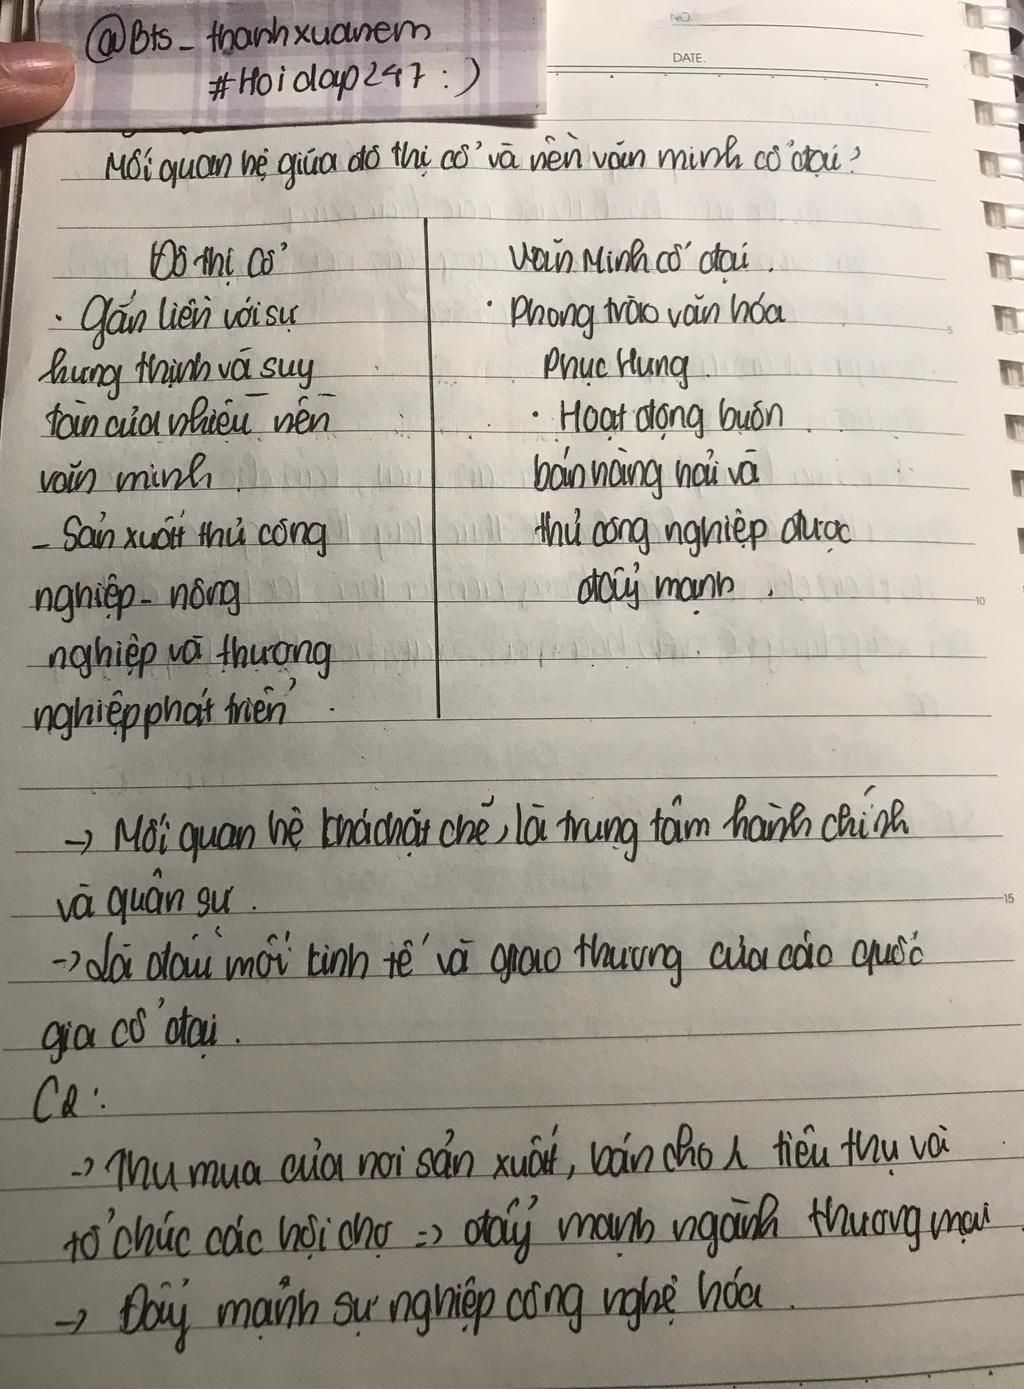 @Bts_thanhxuanem
#Hoidap247 :)
NO.
DATE.
Mối quan hệ giữa đô thị cổ và nền văn minh cổ đại?
Đô thị cổ
· Gắn liền với sự
hưng thịnh và suy
tàn của nhiều nền
văn minh.
- Sản xuất thủ công
nghiệp - nông
nghiệp và thương
nghiệp phát triển.
Văn Minh cổ đại.
· Phong trào văn hóa
Phục Hưng
· Hoạt động buôn
bán hàng hải và
thủ công nghiệp được
đẩy mạnh.
5
10
→ Mối quan hệ khá chặt chẽ, là trung tâm hành chính
và quân sự.
15
→ Là đầu mối kinh tế và giao thương của các quốc
gia cổ đại.
C2:
→ Thu mua của nơi sản xuất, bán cho nơi tiêu thụ và
tổ chức các hội chợ => đẩy mạnh ngành thương mại.
→ Đẩy mạnh sự nghiệp công nghệ hóa.